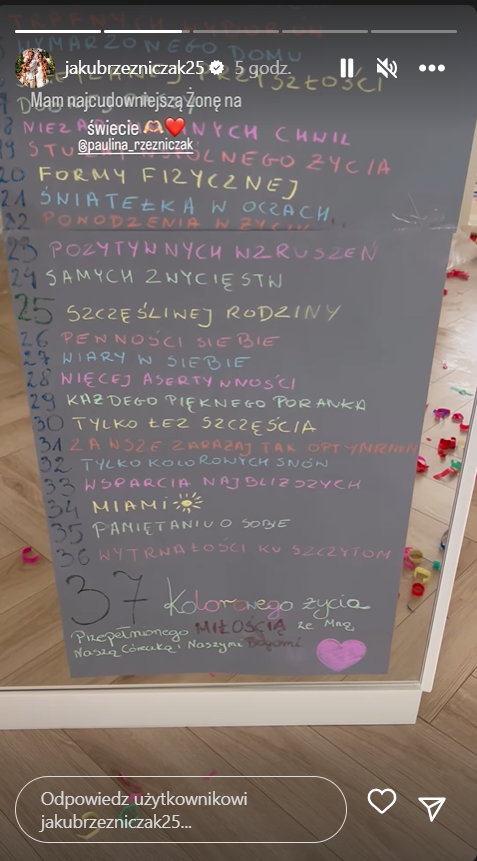 TRAFNYCH WYBORÓW
WYMARZONEGO DOMU
jakubrzezniczak25 5 godz.
ŚWIETLANEJ PRZYSZŁOŚCI
Mam najcudowniejszą Żonę na
świecie 🫶🏻❤️
18 NIEZAPOMNIANYCH CHWIL
@paulina_rzezniczak
19 STU LAT WSPÓLNEGO ŻYCIA
20 FORMY FIZYCZNEJ
21 ŚWIATEŁKA W OCZACH
22 POWODZENIA W ŻYCIU
23 POZYTYWNYCH WZRUSZEŃ
24 SAMYCH ZWYCIĘSTW
25 SZCZĘŚLIWEJ RODZINY
26 PEWNOŚCI SIEBIE
27 WIARY W SIEBIE
28 WIĘCEJ ASERTYWNOŚCI
29 KAŻDEGO PIĘKNEGO PORANKA
30 TYLKO ŁEZ SZCZĘŚCIA
31 ZAWSZE ZARAŻAJ TAK OPTYMIZMEM
32 TYLKO KOLOROWYCH SNÓW
33 WSPARCIA NAJBLIŻSZYCH
34 MIAMI
35 PAMIĘTANIU O SOBIE
36 WYTRWAŁOŚCI KU SZCZYTOM
37 Kolorowego życia
Przepełnionego MIŁOŚCIĄ ze Mną,
Naszą Córeczką i Naszymi
Odpowiedz użytkownikowi
jakubrzezniczak25...